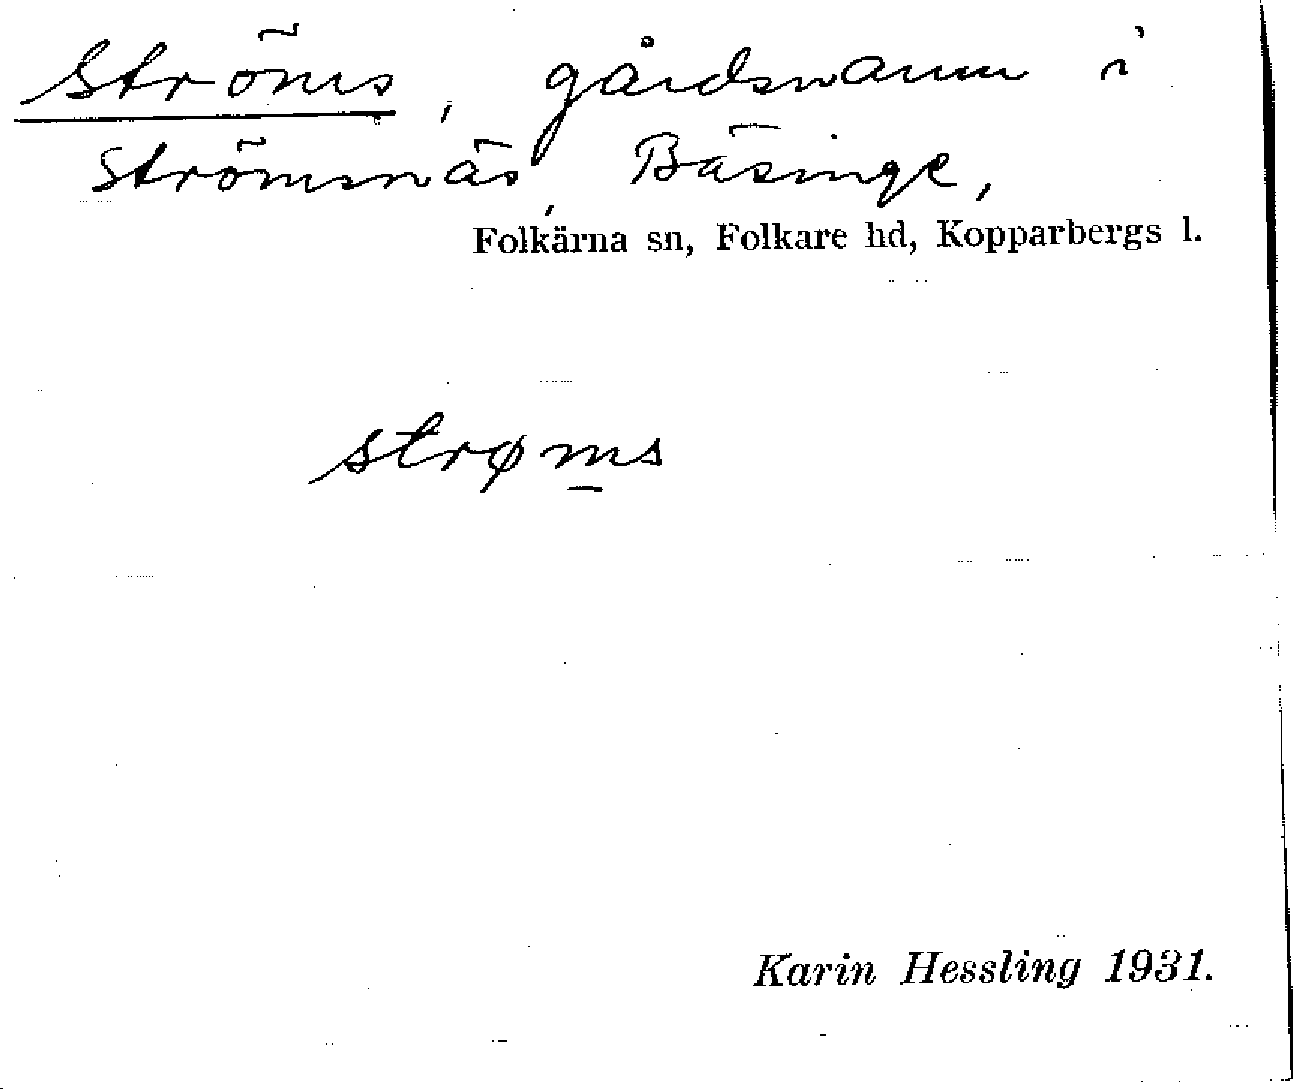 Ströms, gårdsnamn i
Strömsnäs, Bäsinge,
Folkärna sn, Folkare hd, Kopparbergs l.
strøm̲s
Karin Hessling 1931.